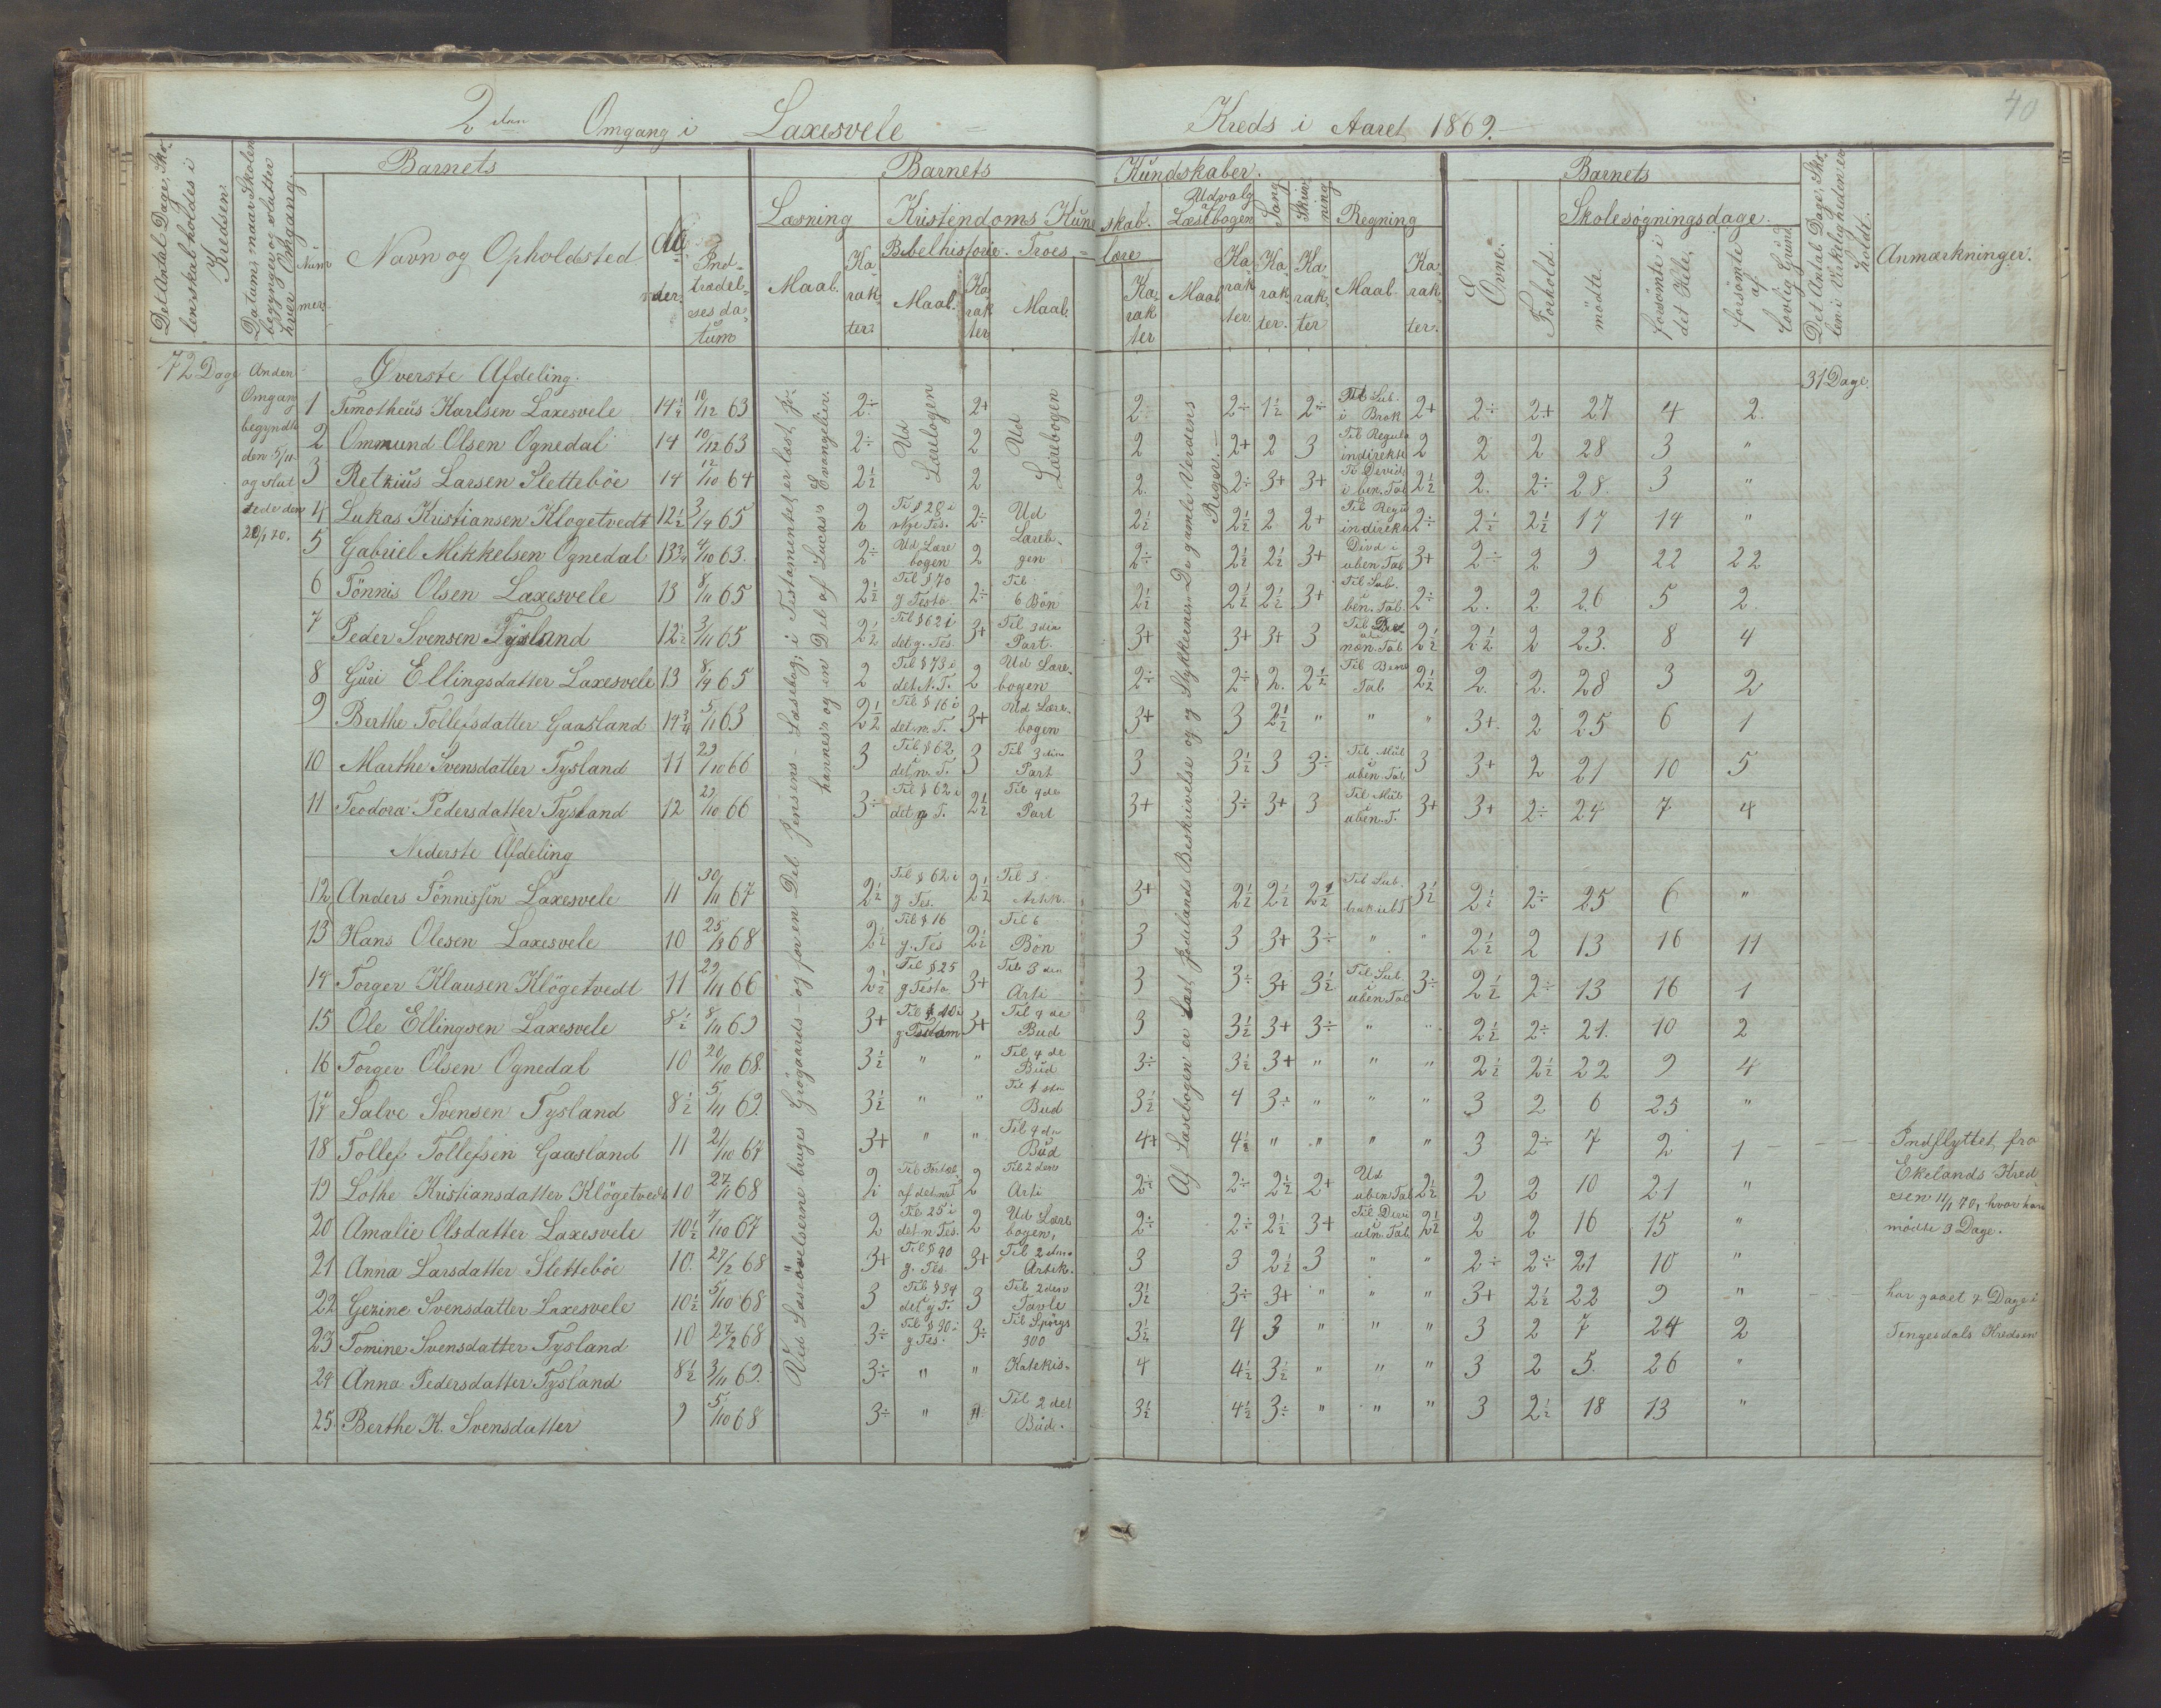 40
2den Omgang i Laxesvele Kreds i Aaret 1869.
Det Antal Dage, Sko-
lenskal holdes i
Kredsen.
Datum, naar Skolen
begynger og slutter
hver Omgang.
Barnets
Num-
mer.
Navn og Opholdsted
Al-
der.
Ind-
trædel-
ses da-
tum
Barnets Kundskaber.
Læsning
Maal.
Ka-
rak-
ter.
Kristendoms Kundskab.
Bibelhistorie. Troeslære
Maal.
Ka-
rak
ter
Maal
Ka-
rak
ter
Udvalg
Læsebogen
Maal
Ka-
rak
ter
Sang
Ka-
rak-
ter.
Skriv-
ning
Ka-
rak-
ter
Regning
Maal
Ka-
rak-
ter.
Barnets
Evne.
Forhold.
Skolesøgningsdage.
mödte.
forsömte i
det Hele,
forsömte
af
lovlig Grund
Det Antal Dage, Sko-
len i Virkeligheden er
holdt.
Anmærkninger.
72 Dage
Anden
Omgang
begyndte
den 5/11
og slut
tede den
70.
31 Dage.
Ved Læseövelserne bruges Grögaards og for en Del Jensens Læsebog; i Testamentet er læst Jo-
hannes's og en Del af Lucas's Evangelier.
Af Læsebogen er læst Fædelands Beskrivelse og Stykkerne "De gamle Verdens
Riger".
Øverste Afdeling.
1 Timotheus Karlsen Laxesvele 14½ 10/12 63 2÷ Ud Lærebogen 2+ Ud Lærebogen 2. 2÷ 1½ 2÷ Til Sub. i Brøk 2+ 2÷ 2+ 27 4 2.
2 Ommund Olsen Ognedal 14 10/12 63 2÷ 2 2 2+ 2 3 Til Regula indirekte 2 2 2 28 3 "
3 Retzius Larsen Sletteböe 14 12/10 64 2½ 2 2. 2÷ 3+ 3+ Til Devid. i ben. Tal 2½ 2. 2÷ 28. 3 "
4 Lukas Kristiansen Klogetvedt 12½ 3/9 65 2 Til § 28 i nye Tes. 2÷ Ud 2½ 2½ 2 2+ Til Regu indirekte 2÷ 2½ 2½ 17 14 "
5 Gabriel Mikkelsen Ognedal 13¾ 4/10 63. 2÷ Ud Lære bogen 2 Læreb- gen 2÷ 2½ 2½ 3+ Divd i uben Tal 3+ 2÷ 2 9 22 22
6 Tönnis Olsen Laxesvele 13 8/11 65 2½ Til § 70 g Testa 2÷ Til 6 Bön 2½ 2½ 2½ 3+ Til Sub. i ben. Tal. 2÷ 2. 2 26 5 2.
7 Peder Svensen Tysland 12½ 3/11 65 2½ Til § 62 i det g. Tes. 3+ Til 3die Part. 3+ 3+ 3+ 3 Tal 2½ 2½ 2 23. 8 4
8 Guri Ellingsdatter Laxesvele 13 8/9 65 2 Til § 73 i det N. T. 2 Ud Lære- bogen 2÷ 2÷ 2. 2½ Til Bene Tal 2½ 2. 2. 28 3 2
9 Berthe Tollefsdatter Gaasland 14¾ 5/11 63 2½ Til § 16 i det n. T. 3+ Ud Lære- bogen 3+ 3 2½ " " " 3+. 2 25 6 1
10 Marthe Svensdatter Tysland 11 29/10 66 3 Til § 62 i det n. T. 3 Til 3die Part 3 3½ 3 3÷ Til Mul i uben. Tal 3 3+ 2 21 10 5
11 Teodora Pedersdatter Tysland 12 29/10 66 3÷ Til § 62 i det g T. 2½ Til 4de Part 3+ 3÷ 3+ 3 Til Mul i uben. T. 3+ 3+ 2÷ 24 7 4
Nederste Afdeling
12 Anders Tönnissen Laxesvele 11 30/11 67 2½ Til § 62 i g Tes. 2½ Til 3. Artk. 3+ 2½ 2½ 2½ Til Sub. 3½ 2½ 2÷ 25 6 "
13 Hans Olesen Laxesvele 10 25/9 68 2½ Til § 16 g. Tes 2½ Til 6 Bön 3 3 3+ 3÷ " " 2½ 2 13 16 11
14 Torger Klausen Klögetvedt 11 29/11 66 2½ Til § 25 g Testa 3+ Til 3 die Arti 3 3÷ 3+ 3½ Til Sub. i uben Tal 3÷ 2½ 2÷ 13 16 1
15 Ole Ellingsen Laxesvele 8½ 8/11 69 3+ Til § 10 i 3+ Til 4 de Bud 3 3½ 3+ 3÷ " " 2½ 2÷ 21. 10 2
16 Torger Olsen Ognedal 10 20/10 68. 3½ " " Til 4 de Bud 3÷ 3½ 3+ " " " 2½ 2½ 22 9 4
17 Salve Svensen Tysland 8½ 5/11 69. 3½ " " Til 1 ste Bud 3½ 4 3÷ " " " 3 2 6 25 "
18 Tollef Tollefsen Gaasland 11 21/10 67 3+ " " Til 4 de Bud 4+ 4½ " " " " 3 2÷ 7 2 1 Indflyttet fra
Ekelands Kred-
sen 11/1 70, hvor han
mödte 3 Dage.
19 Lothe Kristiansdatter Klögetvedt 10 27/11 68 2 af det n T 2 Til 2den Arti 2½ 2÷ 2½ 2+ Ud uben Tal 2½ 2 2 10 21 "
20 Amalie Olsdatter Laxesvele 10½ 4/10 67 2 Til 25 i det n Tes. 2 Ud Lære bogen, 2÷ 2÷ 2½ 3+ Til Devi i uben. Tal. 2½ 2 2 16 15 "
21 Anna Larsdatter Sletteböe 10. 27/2 68 3+ Til § 40 g. Tes. 3+ Til 2den Artik. 3 3 2½ 3 " " 2÷ 2÷ 21 10 "
22 Gezine Svensdatter Laxesvele 10½ 5/10 68 3 Til § 34 i det g T. 3 Til 2den Tavle 3½ 3÷ 3+ " " " 3+ 2½ 22 9 " har gaaet 7 Dage i
23 Tomine Svensdatter Tysland 10 27/2 68 3÷ Til § 30 i g Tes. 3÷ Til Spörgs 300 3½ 4 3 " " " 3 2 7 24 2 Tengesdals Kredsen
24 Anna Pedersdatter Tysland 8½ 3/11 69. 3÷ " " Katekis- 4 4½ 3½ " " " 3 2 5. 26 "
25. Berthe K. Svensdatter 9 5/10 68 3÷ " " Til 2 det Bud. 3½ 4½ 3÷ " " " 3 2½ 18 13 "